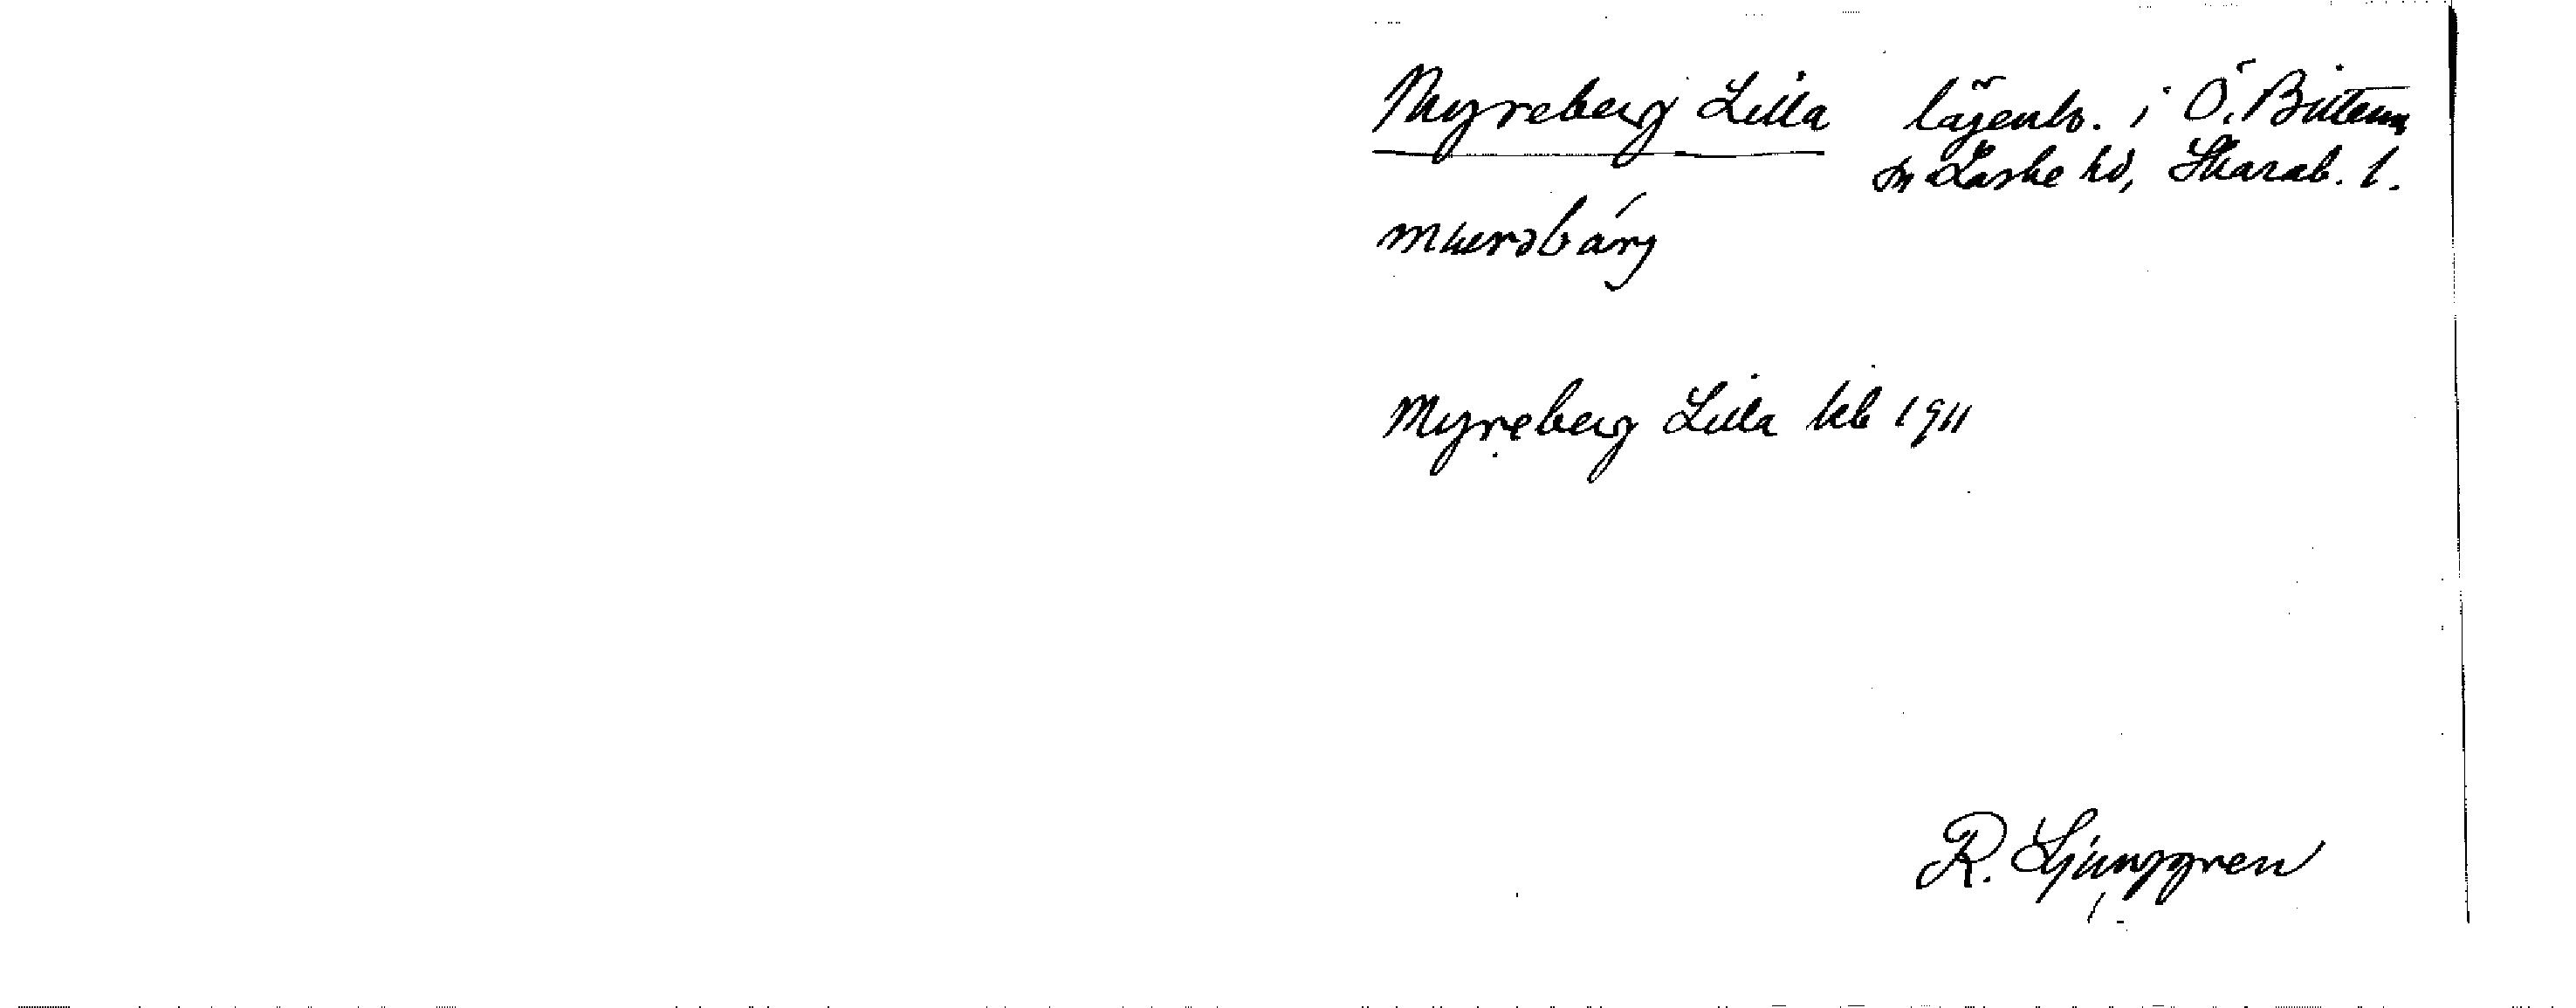 Myreberg Lilla lägenh. i Ö. Bitterna
sn Laske hd, Skarab. l.
Myreberg Lilla kb 1911
R. Ljunggren